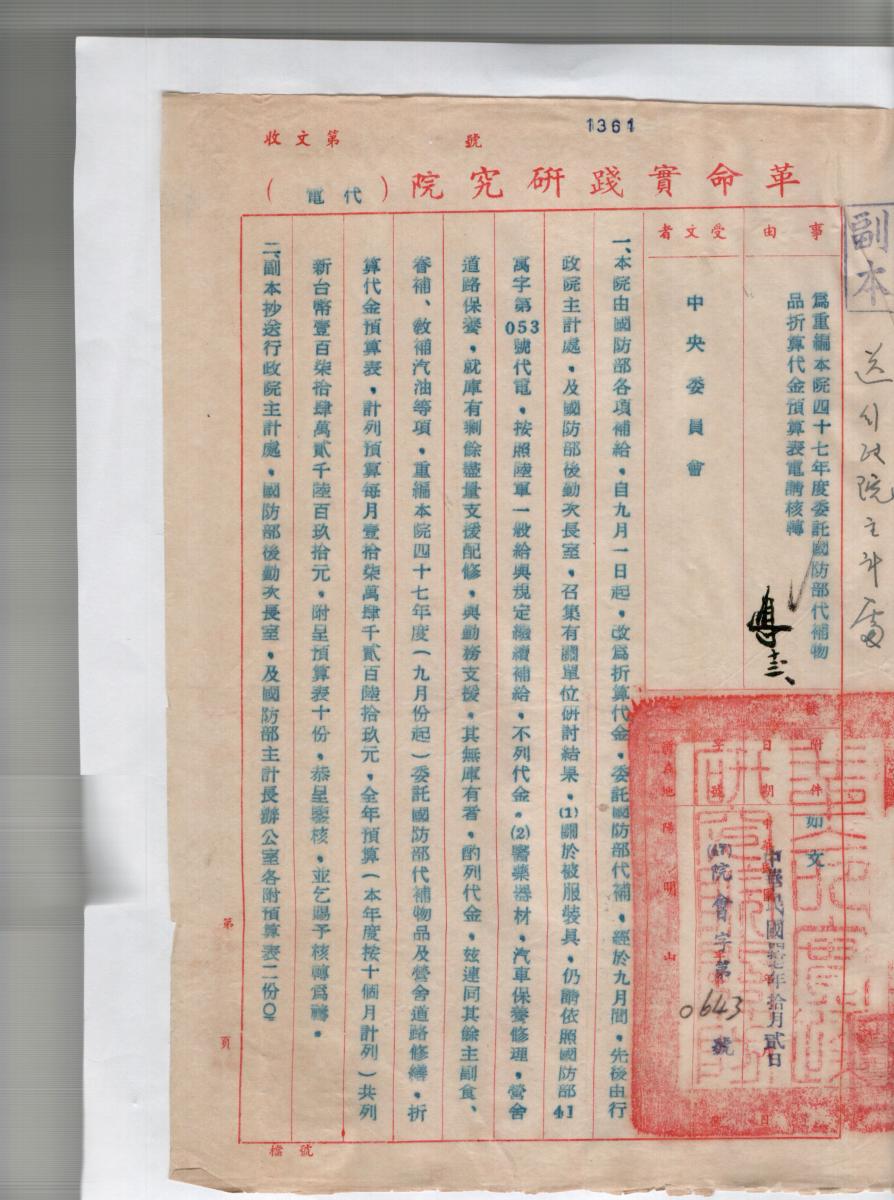 1361
收文第　號
革命實踐研究院（代電）
副本
送行政院主計處
事由
為重編本院四十七年度委託國防部代補物
品折算代金預算表電請核轉
受文者
中央委員會
附件
如文
日期
中華民國四十七年拾月貳日
字號
(47)院會字第0643號
駐在地
陽明山
一、本院由國防部各項補給，自九月一日起，改為折算代金，委託國防部代補，經於九月間，先後由行
政院主計處，及國防部後勤次長室，召集有關單位研討結果，(1)關於被服裝具，仍請依照國防部41
萬字第053號代電，按照陸軍一般給與規定繼續補給，不列代金，(2)醫藥器材，汽車保養修理，營舍
道路保養，就庫有剩餘盡量支援配修，與勤務支援，其無庫有者，酌列代金，茲連同其餘主副食、
眷補、教補汽油等項，重編本院四十七年度（九月份起）委託國防部代補物品及營舍道路修繕，折
算代金預算表，計列預算每月壹拾柒萬肆千貳百陸拾玖元，全年預算（本年度按十個月計列）共列
新台幣壹百柒拾肆萬貳千陸百玖拾元，附呈預算表十份，恭呈鑒核，並乞賜予核轉為禱。
二、副本抄送行政院主計處，國防部後勤次長室，及國防部主計長辦公室各附預算表二份〇
第　頁
檔號